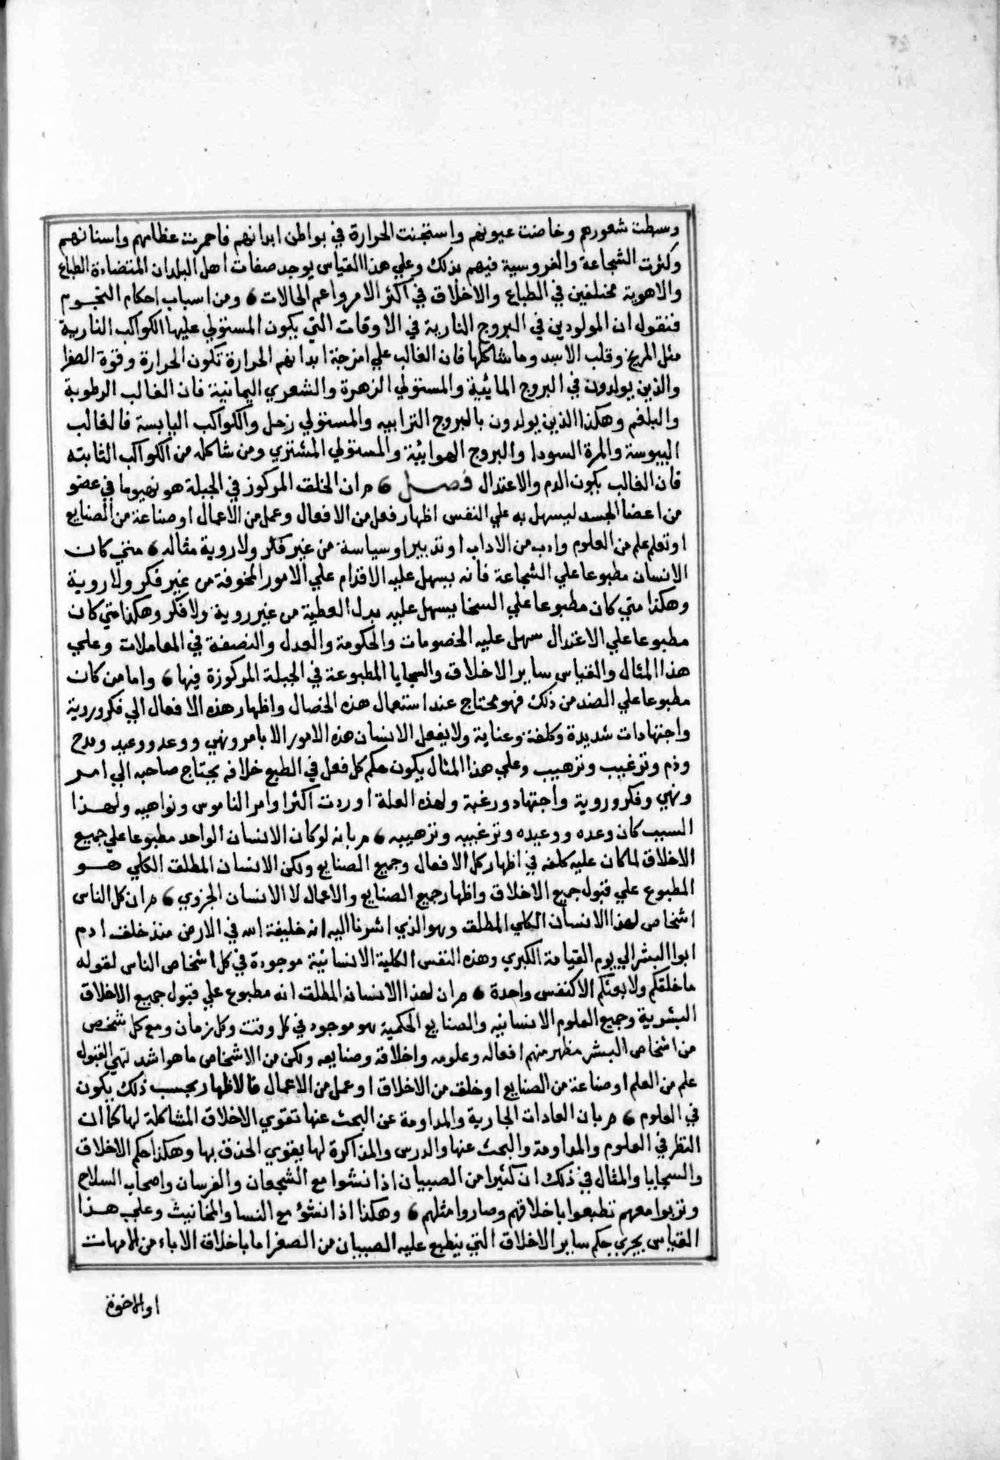 وسطت شعورهم وغاصت عيونهم واستجنت الحرارة في بواطن ابدانهم فاحمرت عظامهم واسنانهم
وكثرت الشجاعة والفروسية فيهم بذلك وعلي هذا القياس يوجد صفات اهل البلدان المتضادة الطباع
والاهوية مختلفين في الطباع والاخلاق في اكثر الامر واعم الحالات ومن اسباب احكام النجوم
فنقول ان المولودين في البروج النارية في الاوقات التي يكون المستولي عليها الكواكب النارية
مثل المريخ وقلب الاسد وما شاكلها فان الغالب علي امزجة ابدانهم الحرارة تكون الحرارة وقوة الصفرا
والذين يولدون في البروج المائية والمستولي الزهرة والشعري اليمانية فان الغالب الرطوبة
والبلغم وهكذا الذين يولدون بالبروج الترابيه والمستولي زحل والكواكب اليابسة فالغالب
اليبوسة والمرة السودا والبروج الهوايئة والمستولي المشتري ومن شاكله من الكواكب الثابته
فان الغالب يكون الدم والاعتدال فصل ان الخلق المركوز في الجبلة هو تهيوما في عضو
من اعضا الجسد ليسهل به علي النفس اظهار فعل من الافعال وعمل من الاعمال او صناعة من الصنايع
او تعلم علم من العلوم وادب من الاداب او تدبير او سياسة من غير فكر ولا روية مثاله متي كان
الانسان مطبوعا علي الشجاعة فانه يسهل عليه الاقدام علي الامور المخوفة من غير فكر ولا روية
وهكذا متي كان مطبوعا علي السخا يسهل عليه بدل العطية من غير روية ولا فكر وهكذا متي كان
مطبوعا علي الاعتدال سهل عليه الخصومات والحكومة والعدل والنصفة في المعاملات وعلي
هذا المثال والقياس ساير الاخلاق والسجايا المطبوعة في الجبلة المركوزة فيها واما من كان
مطبوعا علي الضد من ذلك فهو محتاج عند استعمال هذه الخصال واظهار هذه الافعال الي فكر وروية
واجتهادات شديدة وكلفة وعناية ولا يفعل الانسان هذه الامور الا بامر ونهي ووعد ووعيد ومدح
وذم وترغيب وترهيب وعلي هذا المثال يكون حكم كل فعل في الطبع خلافه يحتاج صاحبه الي امر
ونهي وفكر وروية واجتهاد ورغبة ولهذه العلة اوردت اكثر اوامر الناموس ونواهيه ولهذا
السبب كان وعده ووعيده وترغيبه وترهيبه بانه لو كان الانسان الواحد مطبوعا علي جميع
الاخلاق لما كان عليه كلفه في اظهار كل الافعال وجميع الصنايع ولكن الانسان المطلق الكلي هو
المطبوع علي قبول جميع الاخلاق واظهار جميع الصنايع والاعمال لا الانسان الجزوي ان كل الناس
اشخاص لهذا الانسان الكلي المطلق وهو الذي اشرنا اليه انه خليفة الله في الارض منذ خلق ادم
ابوا البشر الي يوم القيامة الكبري وهذه النفس الكلية الانسانية موجودة في كل اشخاص الناس لقوله
ما خلقكم ولا بعثكم الا كنفس واحدة ان لهذا الانسان المطلق انه مطبوع علي قبول جميع الاخلاق
البشرية وجميع العلوم الانسانيه والصنايع الحكمية هو موجود في كل وقت وكل زمان ومع كل شخص
من اشخاص البشر مظهر منهم افعاله وعلومه واخلاقه وصنايعه ولكن من الاشخاص ما هو اشد تهي لقبول
علم من العلم او صناعة من الصنايع او خلق من الاخلاق او عمل من الاعمال فالاظهار بحسب ذلك يكون
في العلوم بان العادات الجارية والمداومة عن البحث عنها تقوي الاخلاق المشاكلة لها كما ان
النظر في العلوم والمداومة والبحث عنها والدرس والمذاكرة لها يقوي الحذق بها وهكذا حكم الاخلاق
والسجايا والمثال في ذلك ان كثيرا من الصبيان اذا نشوا مع الشجعان والفرسان واصحاب السلاح
وتربوا معهم تطبعوا باخلاقهم وصاروا مثلهم وهكذا اذا نشو مع النسا والمخانيث وعلي هذا
القياس يجري حكم ساير الاخلاق التي ينطبع عليه الصبيان من الصغر اما باخلاق الاباء من الامهات
او الاخوة